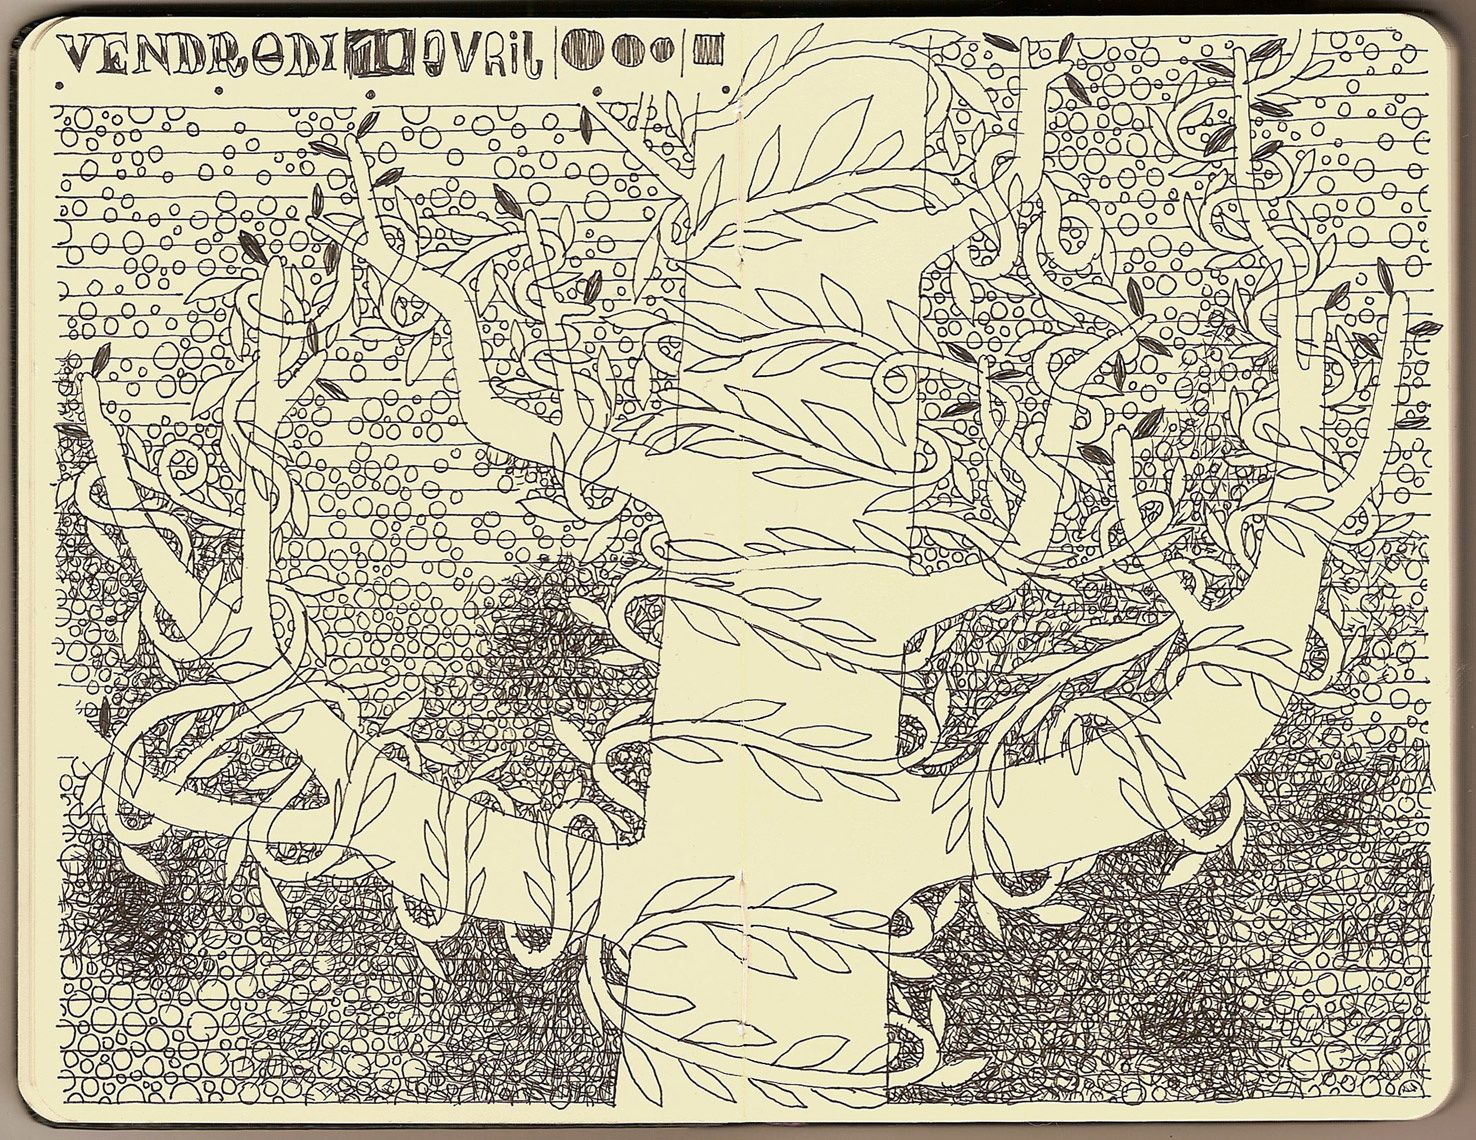 VENDREDI 11 AVRIL